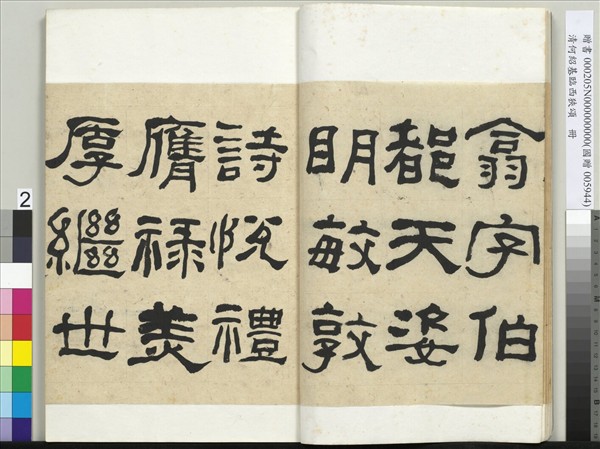 贈書 000205N000000000(國贈 005944)
清何紹基臨西狹頌 冊
翕字伯
都天姿
眀敏敦
詩悅禮
膺祿美
厚繼世
2